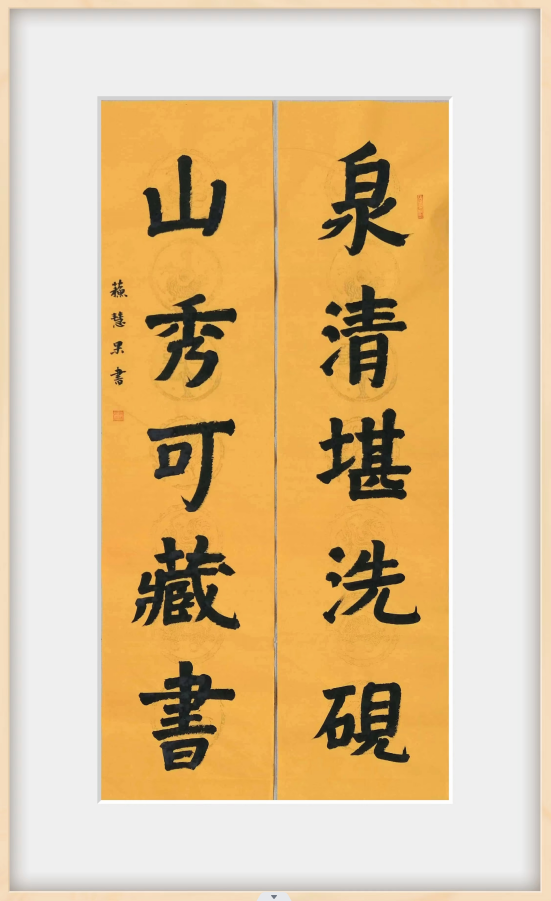 泉清堪洗硯
山秀可藏書
蘓慧杲書